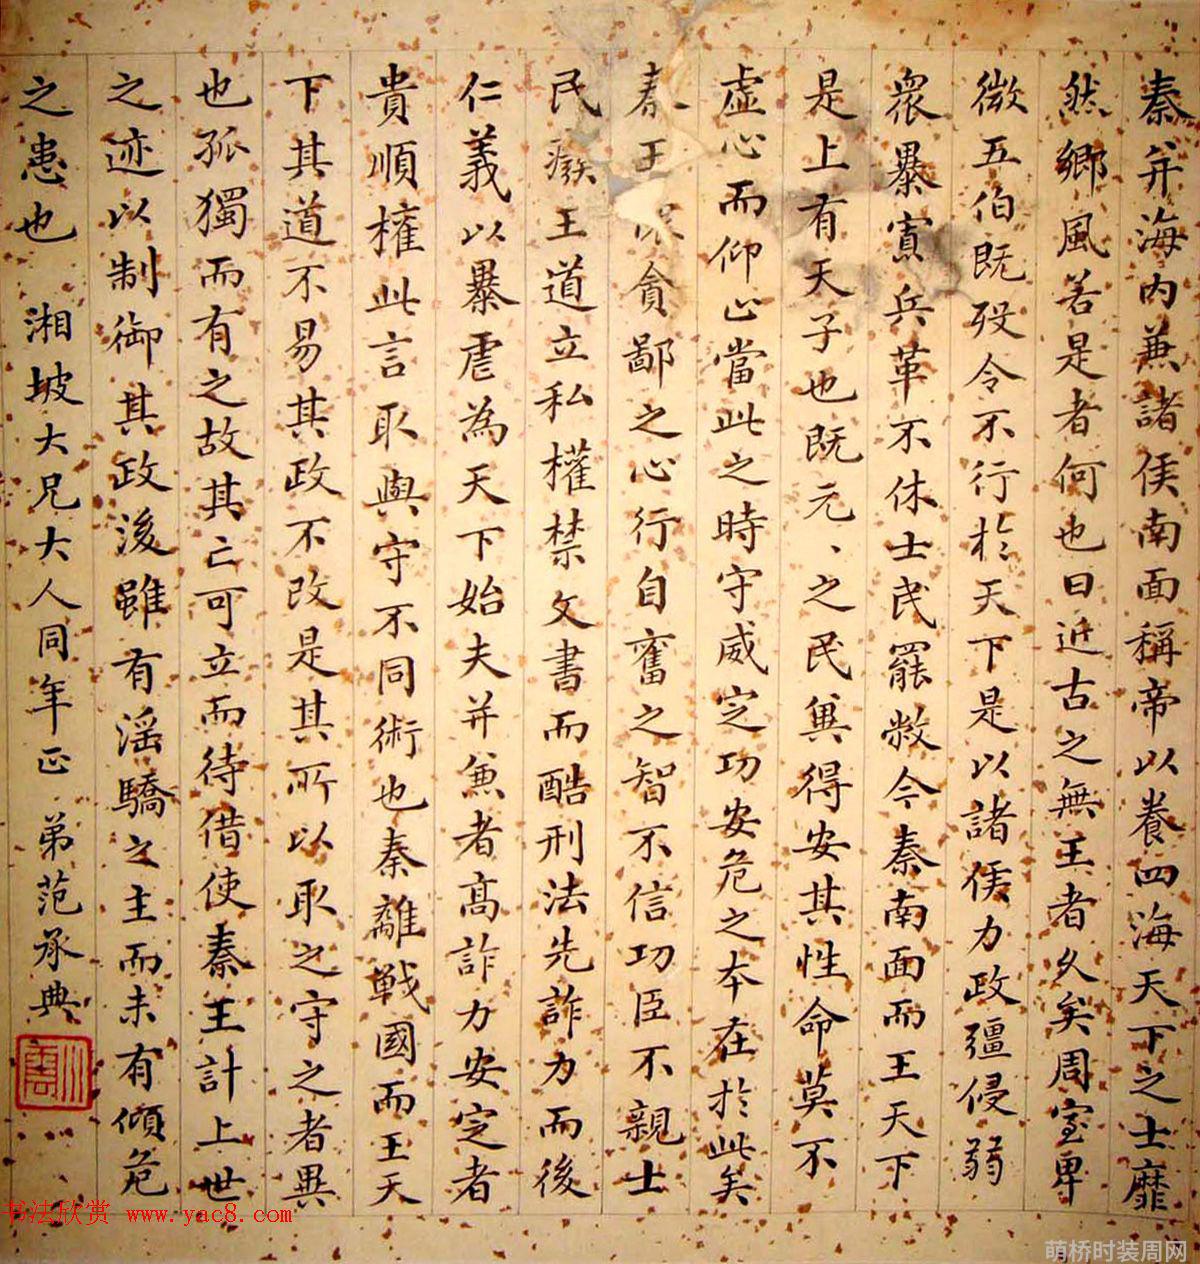 秦并海内兼諸侯南面稱帝以養四海天下之士靡
然鄉風若是者何也曰近古之無王者久矣周室卑
微五伯既歿令不行於天下是以諸侯力政彊侵弱
衆暴寡兵革不休士民罷敝今秦南面而王天下
是上有天子也既元、之民兾得安其性命莫不
虛心而仰上當此之時守威定功安危之本在於此矣
秦王懷貪鄙之心行自奮之智不信功臣不親士
民廢王道立私權禁文書而酷刑法先詐力而後
仁義以暴虐為天下始夫并兼者高詐力安定者
貴順權此言取與守不同術也秦離戰國而王天
下其道不易其政不改是其所以取之守之者異
也孤獨而有之故其亡可立而待借使秦王計上世
之迹以制御其政後雖有淫驕之主而未有傾危
之患也 湘坡大兄大人同年正 弟范承典
书法欣赏 www.yac8.com
萌桥时装周网